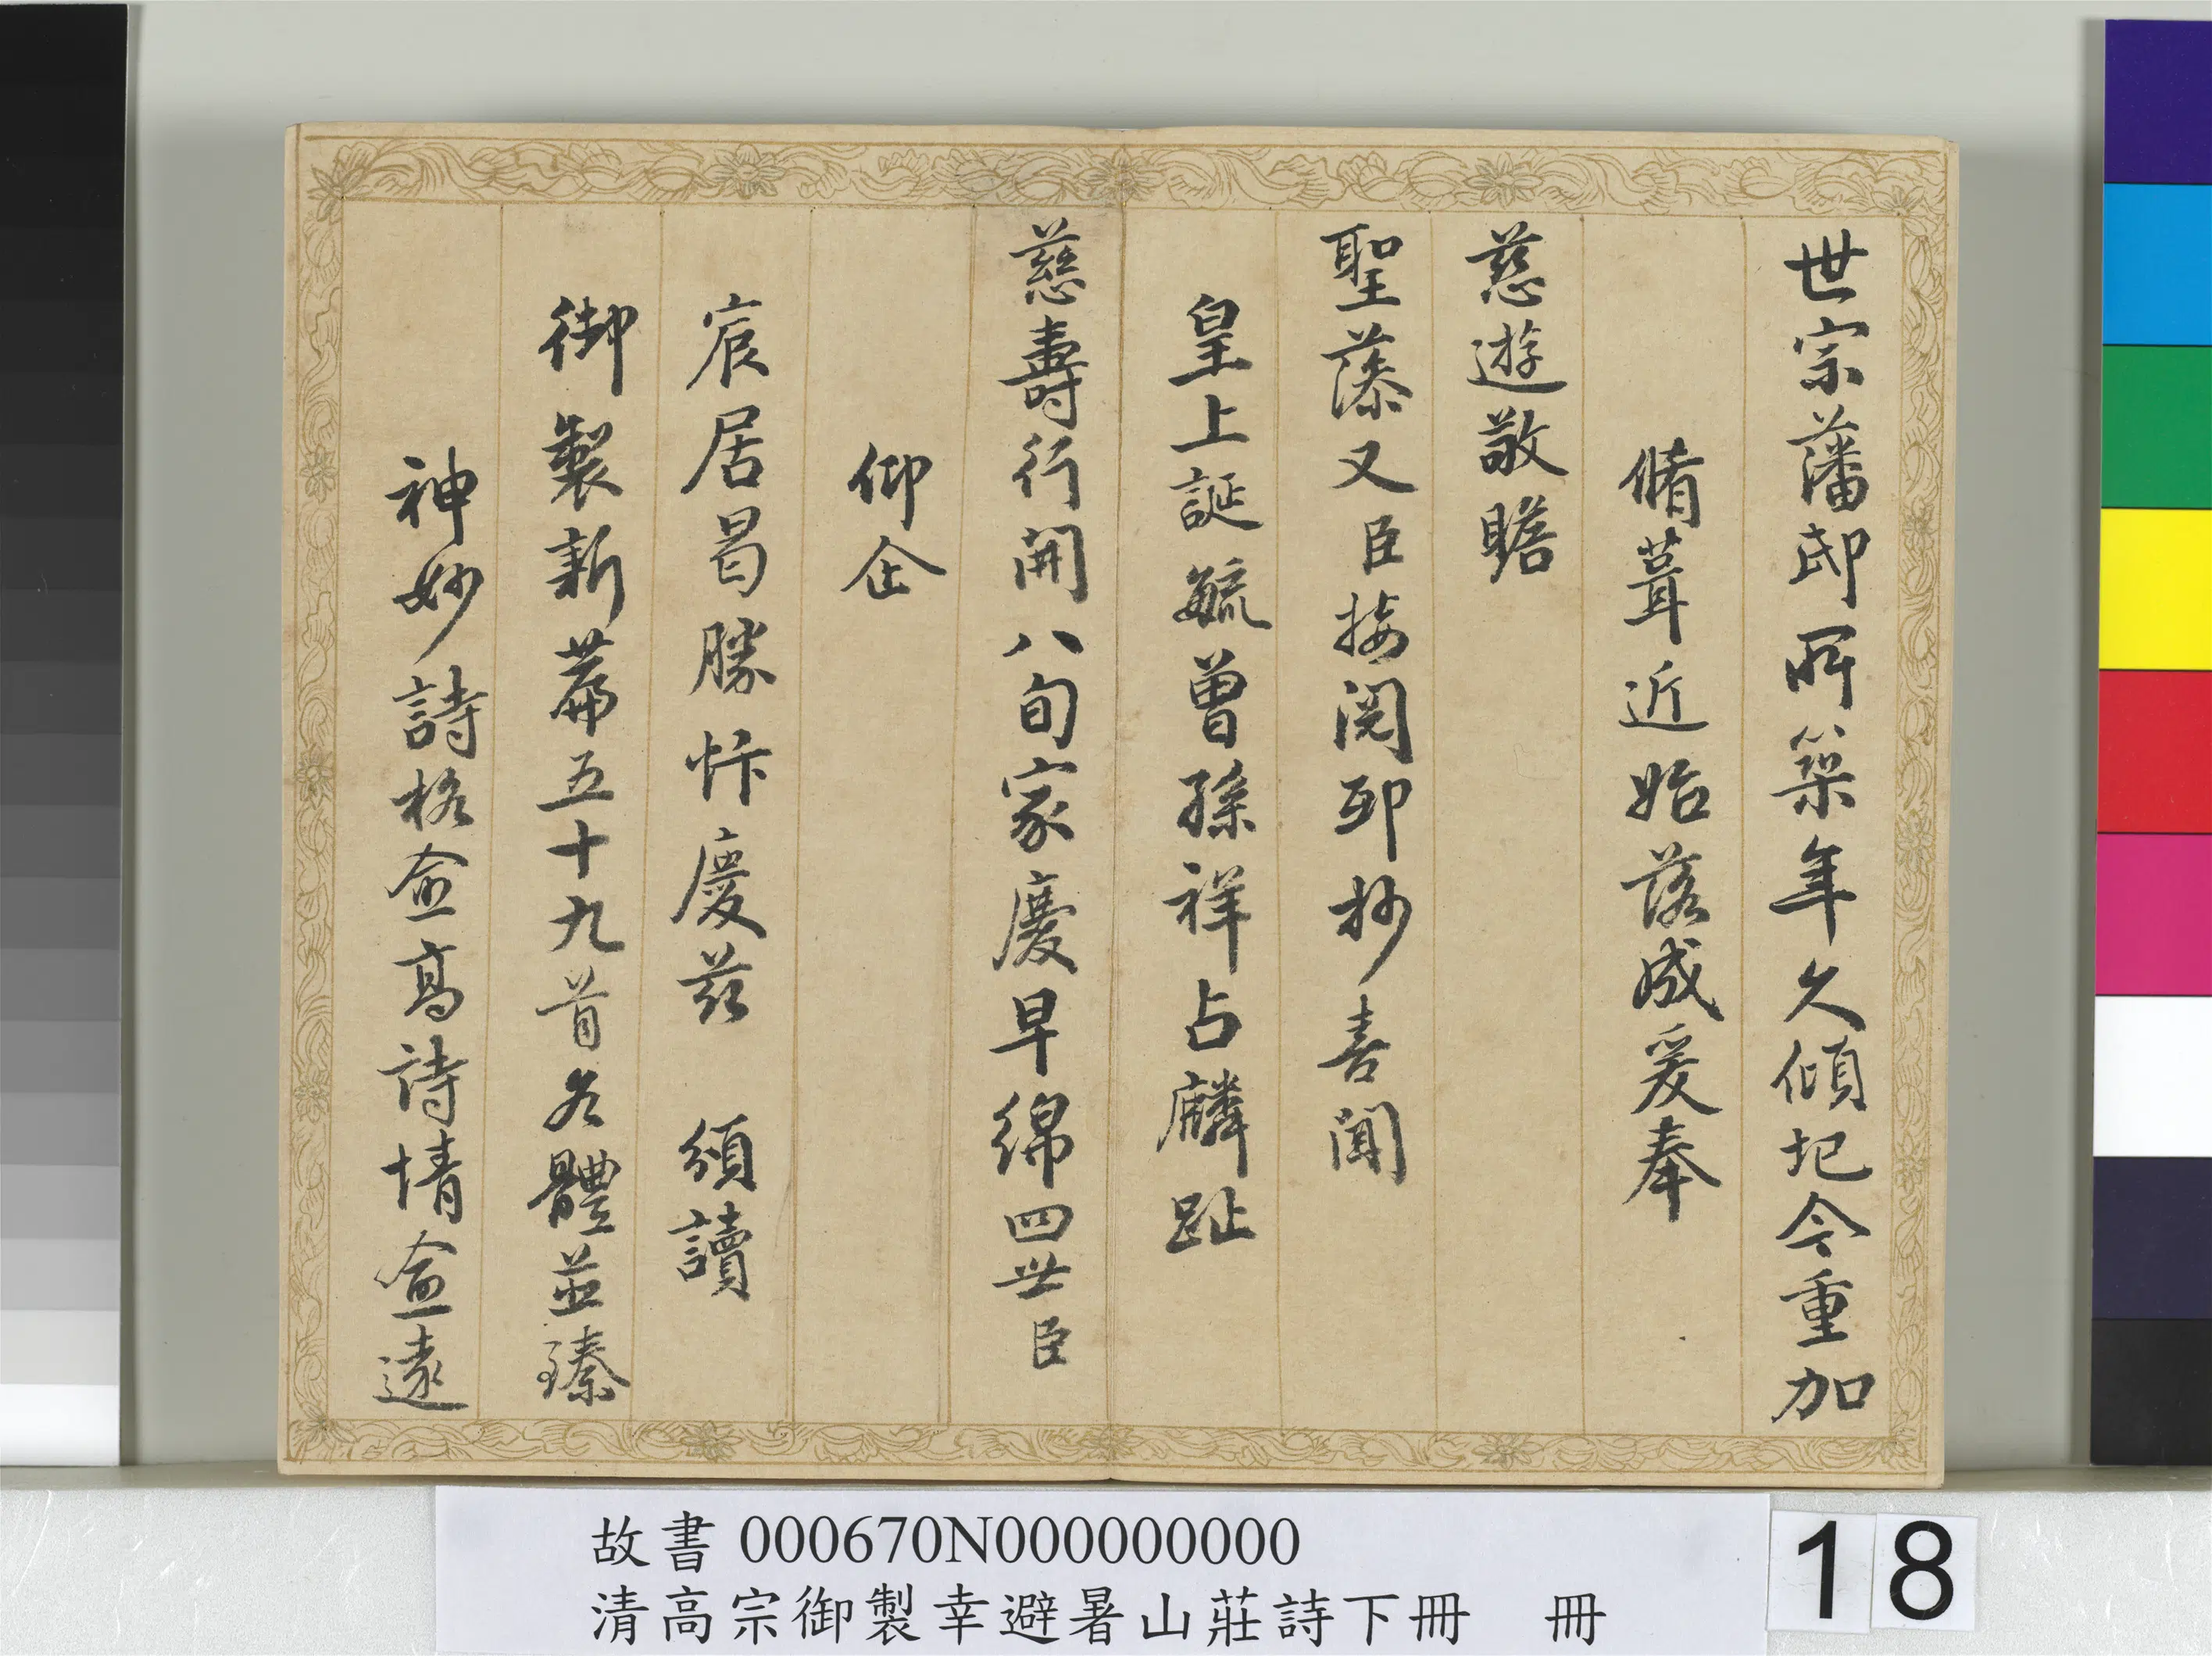 世宗藩邸所築年久傾圮今重加
脩葺近始落成爰奉
慈遊敬瞻
聖藻又臣接閱邸抄喜聞
皇上誕毓曾孫祥占麟趾
慈壽行開八旬家慶早綿四世臣
仰企
宸居曷勝忭慶茲 頒讀
御製新篇五十九首各體並臻
神妙詩格僉高詩情僉遠
故書 000670N000000000
清高宗御製幸避暑山莊詩下冊 冊
18